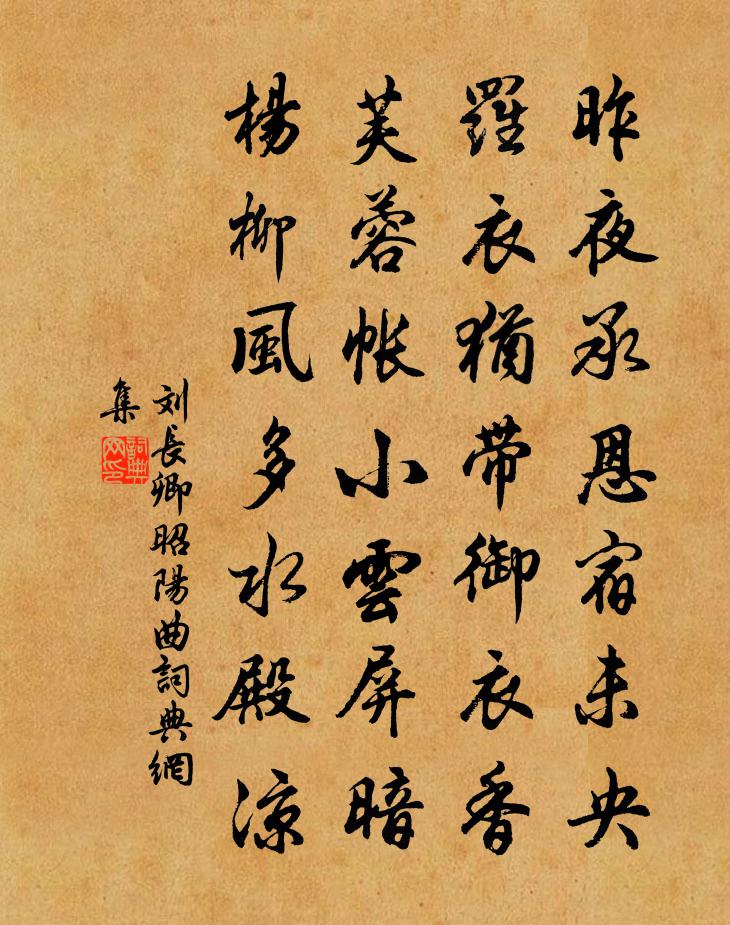 昨夜承恩宿未央
羅衣猶帶御衣香
芙蓉帳小雲屏暗
楊柳風多水殿凉
刘長卿昭陽曲詞典網
集
詞典
网印